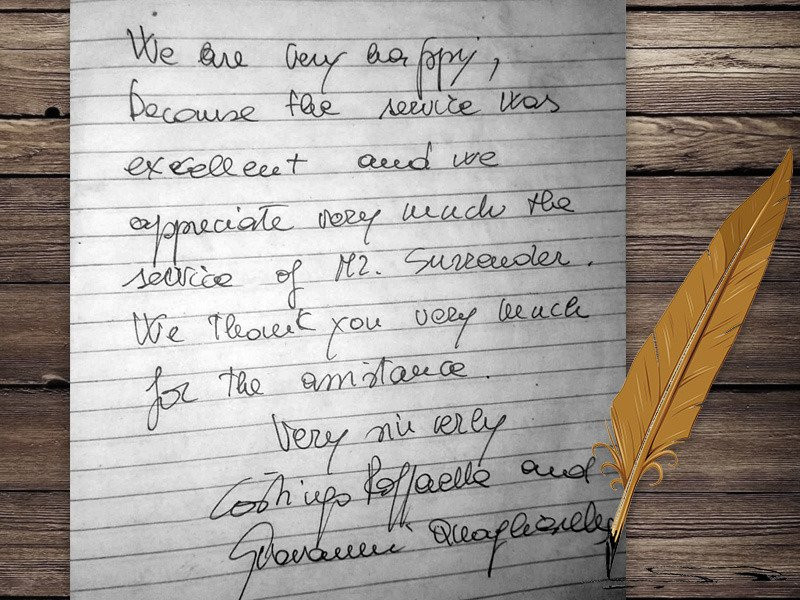 We are very happy,
because the service was
excellent and we
appreciate very much the
service of Mr. Surrender.
We Thank you very much
for the assistance.
Very sincerely
Raffaella and
Giovanni